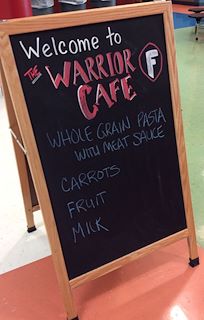 Welcome to
THE WARRIOR F
CAFE
WHOLE GRAIN PASTA
WITH MEAT SAUCE
CARROTS
FRUIT
MILK